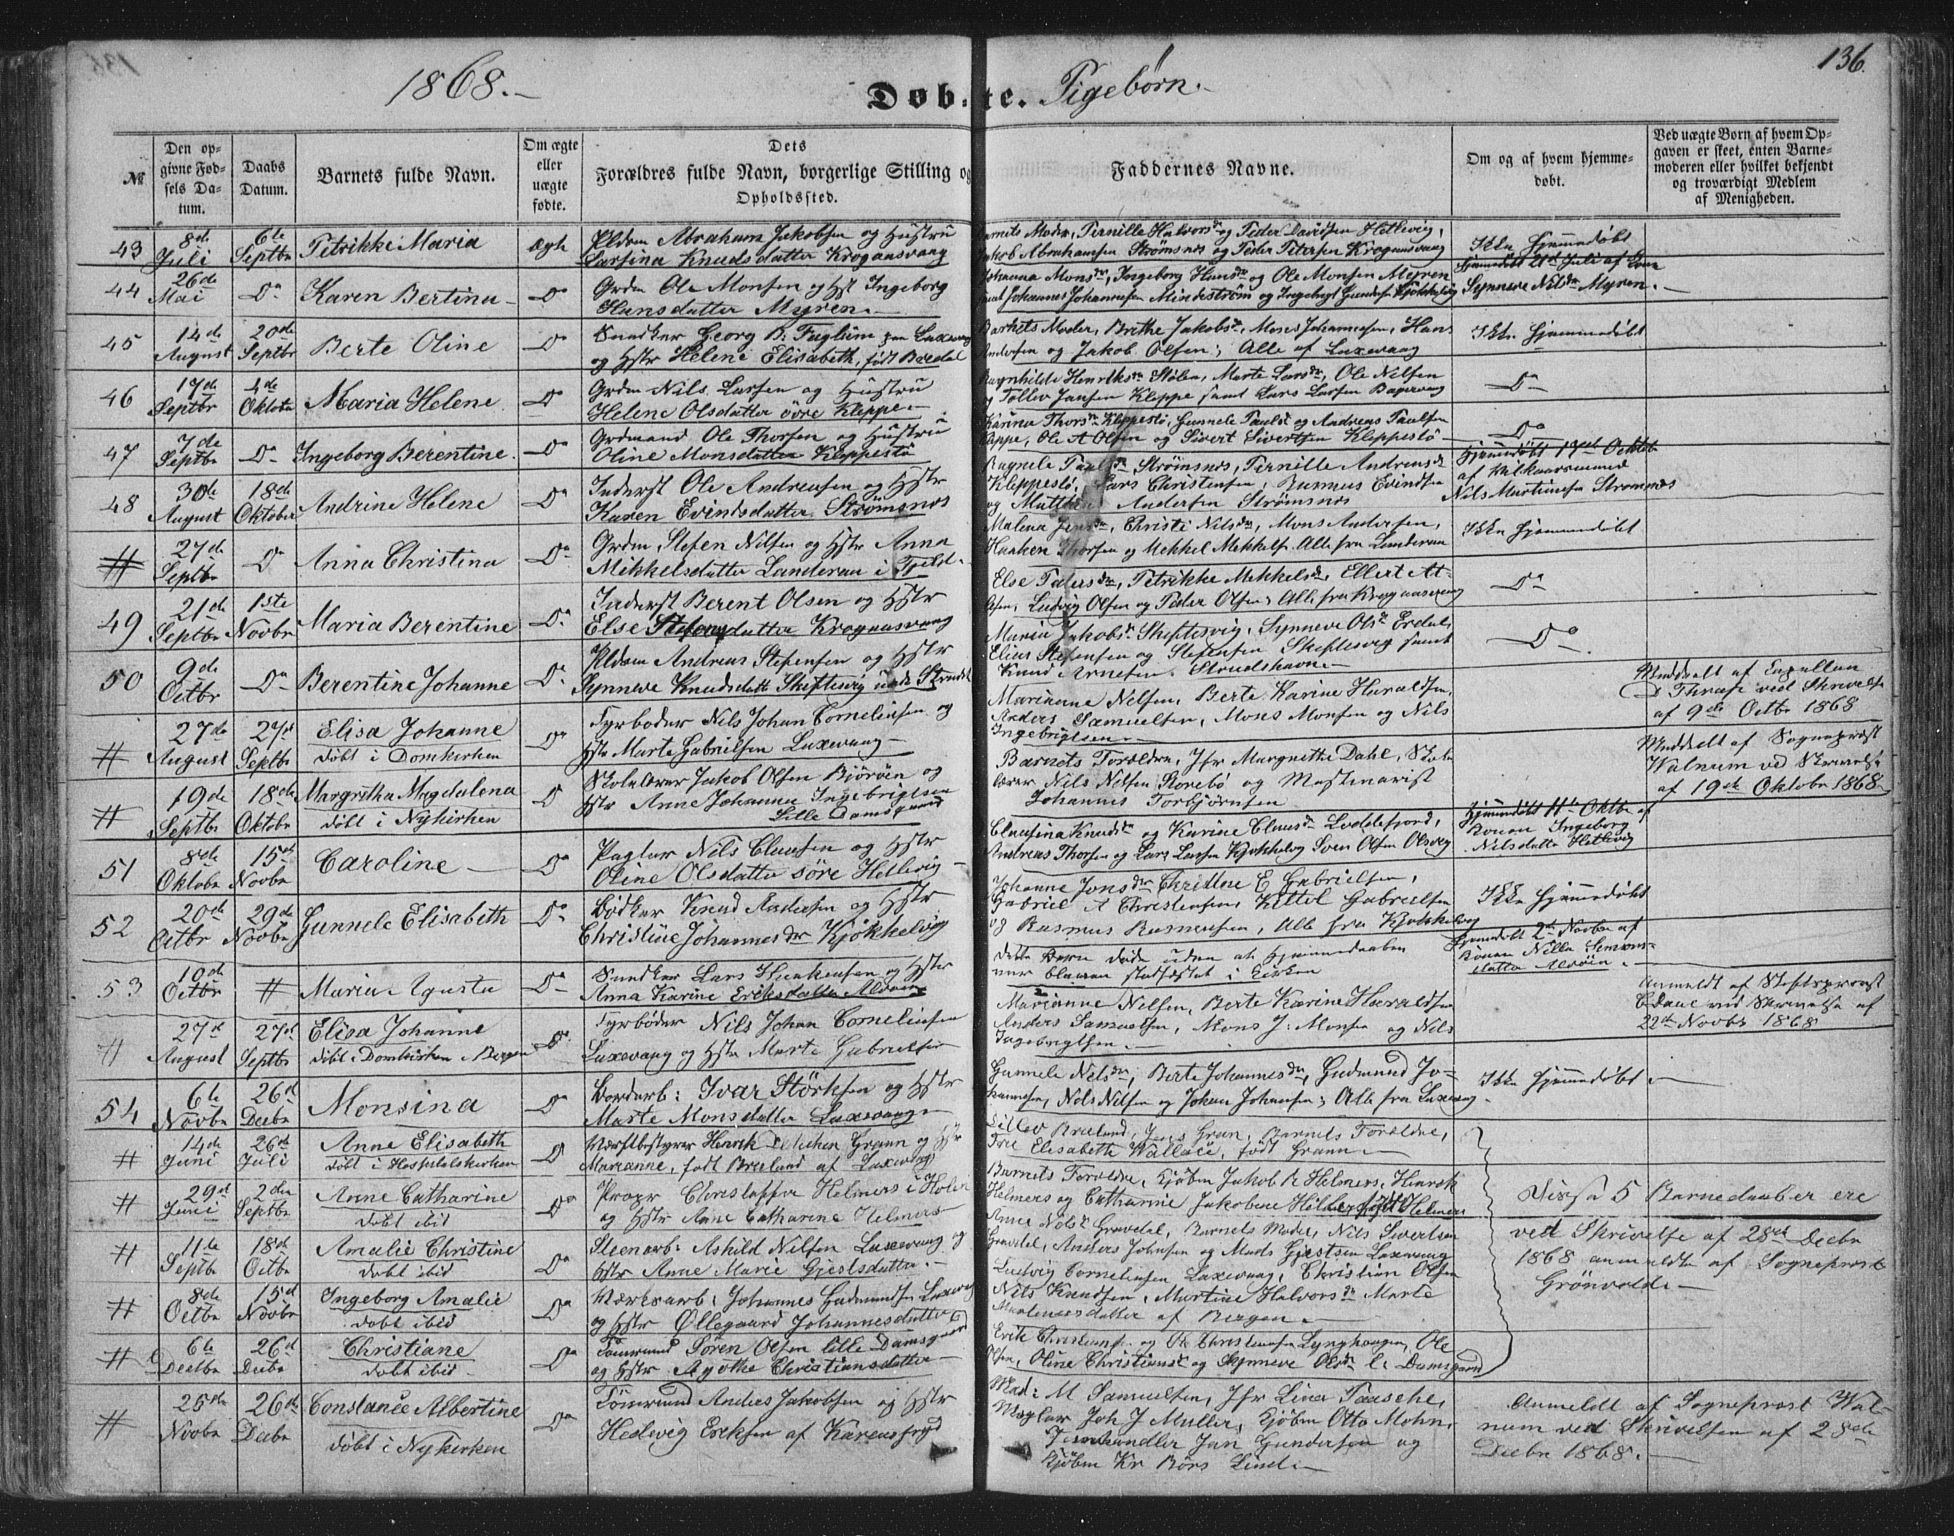 1868.-
Døbte. Pigebørn.
136.
№
Den opgivne Fødsels Datum.
Daabs Datum.
Barnets fulde Navn.
Om ægte eller uægte fødte.
Dets Forældres fulde Navn, borgerlige Stilling og Opholdssted.
Faddernes Navne.
Om og af hvem hjemmedøbt.
Ved uægte Børn af hvem Opgaven er skeet, enten Barnemoderen eller hvilket bekjendt og troværdigt Medlem af Menigheden.
43 8de Juli 6te Septbr Petrikke Maria ægte
Abraham Jakobsen og Hustru
Larsina Knudsdatter Krogaasvaag
Barnets Moder, Pernille Halvorsdr og Peder Davidsen Hetlevig,
Jakob Abrahamsen Strømsnes og Peder Petersen Krogaasvaag
Ikke Hjemmedøbt
44 26de Mai Do Karen Bertina Do
Grdm Ole Monsen og Hst Ingeborg
Hansdatter Myren
Johanna Monsdr, Ingeborg Hansdr og Ole Monsen Myren
samt Johannes Johannesen Mindestrøm og Ingebrigt
Hjemmedøbt 21de Juli af
Synneve Nilsdr Myren.
45 14de August 20de Septbr Berte Oline Do
Snedker Georg B. Fuglum paa Laxevaag
og Hstr Helene Elisabeth, født Bredal
Moder, Brithe Jakobsdr, Moses Johannesen, Hans
Andersen og Jakob Olsen, Alle af Laxevaag
Ikke Hjemmedøbt
46 17de Septbr 4de Oktobr Maria Helene Do
Grdm Nils Larsen og Hustru
Helene Olsdatter øvre Kleppe
Ragnhilde Henriksdr Stølen, Marte Larsdr, Ole Nilsen
og Tollev Jansen Kleppe samt Lars Larsen
Do
47 7de Septbr Do Ingeborg Berentine Do
Grdmand Ole Thorsen og Hustru
Oline Monsdatter Kleppestø
Karina Thorsdr Kleppestø, Gunnele Paulsdr og Andreas Paulsen
Kleppe, Ole A Olsen og Sivert Sivertsen Kleppestø
Do
48 30de August 18de Oktober Andrine Helene Do
Inderst Ole Andreasen og Hstr
Karen Evindsdatter Strømsnes
Ragnele Paulsdr Strømsnes, Pernille Andreasdr
Kleppestø, Lars Christensen, Rasmus Evindsen
og Andersen Strømsnes
Hjemmedøbt 17de Oktobr
af
Nils Martinusen Strømsnes
# 27de Septbr Do Anna Christina Do
Grdm Stefen Nilsen og Hstr Anna
Mikkelsdatter Landeraa i Fjeld
Malena Jensdr, Christi Nilsdr, Mons Andersen,
Haaken Thorsen og Mekkel Mekkels. Alle fra Landeraa
Ikke Hjemmedøbt
49 21de Septbr 1ste Novbr Maria Berentine Do
Inderst Berent Olsen og Hstr
Else Stefensdatter Krogaasvaag
Else Pedersdr, Petrikke Mekkelsdr, Ellert
Olsen, Ludvig Olsen og Peder Olsen, Alle fra Krogaasvaag
Do
50 9de Octbr Do Berentine Johanne Do
Andreas Stefensen og Hstr
Synneve Knudsdatter Skiftesvig
Maria Jakobsdr Skiftesvig, Synneve Olsdr Erdal,
Elias Stefensen og Stefensen Skiftesvig samt
Knud Arnesen Strudshavn
Do
# 27de August 27de Septbr Elisa Johanne
døbt i Domkirken Do
Fyrbøder Nils Johan Corneliusen og
Hstr Marte Gabrielsen Laxevaag
Marianne Nilsen, Berte Karine Haraldsen,
Anders Samuelsen, Moses Monsen og Nils
Ingebrigtsen
Meddelt af Capellan
D Thrap ved Skrivelse
af 9de Octbr 1868
# 19de Septbr 18de Oktobr Margretha Magdalena
døbt i Nykirken D
Skolelærer Jakob Olsen Bjørøen og
Hstr Anne Johanna Ingebrigtsen
Lille Damsgaard
Barnets Forældre, Jfr Margrethe Dahl, Skole
lærer Nils Nilsen Storebø og
Johannes Torbjørnsen
Meddelt af Sogneprest
Walnum ved Skrivelse
af 19de Oktobr 1868
51 8de Oktobr 15de Novbr Caroline Do
Nils Clausen og Hstr
Oline Olsdatter søre Hetlevig
Clausina Knudsdr og Karine Clausdr Loddefjord,
Andreas Thorsen og Lars Larsen Kjøkkelvig Sven Olsen Olsvig
Hjemmedøbt 11te Oktbr af
Konen Ingeborg
Nilsdatter Hetlevig
52 20de Octbr 29de Novbr Gunnele Elisabeth Do
Bødker Knud Andersen og Hstr
Christine Johannesdr Kjøkkelvig
Johanne Jonsdr Christine E Gabrielsen,
Gabriel A Christensen, Kittel Gabrielsen
og Rasmus Rasmussen, Alle fra Kjøkkelvig
Ikke Hjemmedøbt
53 10de Octbr # Maria Agusta Do
Snedker Lars Haakensen og Hstr
Anna Karine Eriksdatter Alvøen
Dette Barn døde uden at Hjemmedaaben
var bleven stadfæstet i Kirken
Hjemmedøbt 2de Novbr af
Konen Nille Simons-
datter Alvøen.
# 27de August 27de Septbr Elisa Johanne
døbt i Domkirken i Bergen Do
Fyrbøder Nils Johan Corneliusen
Laxevaag og Hstr Marte Gabrielsen
Marianne Nilsen, Berte Karine Haraldsen
Anders Samuelsen, Mons J. Monsen og Nils
Ingebrigtsen
Anmeldt af Stiftsprovst
ved Skrivelse af
22de Novbr 1868
54 6te Novbr 26de Decbr Monsina Do
Bordarb: Ivar Størksen og Hstr
Marte Monsdatter Laxevaag
Gunnele Nilsdr, Berte Johannesdr, Gudmund Jo-
hannesen, Nils Nilsen og Johan Johansen, Alle fra Laxevaag
Ikke Hjemmedøbt
# 14de Juni 26de Juli Anne Elisabeth
døbt i Hospitalskirken D
Værftsbestyrer Henrik Grann og Hstr
Marianne, født Breeland af Laxevaag
Breeland, Jens Gran, Barnets Forældre,
Fru Elisabeth Wallace, født Grann
# 29de Junii 2den Septbr Anne Catharine
døbt ibid Do
Propr Christoffer Helmers i Holen
og Hstr Anne Catharine Helmers
Barnets Forældre, Kjøbm Jakob R Helmers, Henrik
Helmers og Catharine Jakobine født Helmers
Disse 5 Barnedaaber ere
ved Skrivelse af 28de Decbr
1868 anmeldte af Sogneprest
Grønvold
# 11te Septbr 18de Octbr Amalie Christine
døbt ibid Do
Steenarb: Askild Nilsen Laxevaag og
Hstr Anne Marie Gjertsdatter
Anne Nilsdr Gravdal, Barnets Moder, Nils Sivertsen
Gravdal, Anders Johnsen og Mads Gjertsen Laxevaag
# 8de Octbr 15de Novbr Ingeborg Amalie
døbt ibid Do
Værksarb: Johannes Gudmundsen Laxevaag
og Hstr Ollegaard Johannesdatter
Ludvig Corneliusen Laxevaag, Christian Olsen
Nils Knudsen, Martine Halvorsdr Marte
Mortensdatter af Bergen
# 6te Decbr 26de Decbr Christiane
døbt ibid Do
Tømrmd Søren Olsen lille Damsgaard
og Hstr Christiansdatter
Erik og Ole Christensen Lynghaugen, Ole
Olsen, Oline Christiansdr og Synneve Olsdr l: Damsgaard
# 25de Novbr 26de Decbr Constance Albertine
døbt i Nykirken Do
Tømrmand Anders Jakobsen og Hstr
Hedevig Eriksen af
Mad: M Samuelsen, Jfr Lina Paasche,
Mægler Joh J Muller, Kjøbm Otto Mohn,
Jan Gundersen og
Kjøbm Kr Børs Lind
Anmeldt af Sogneprest Wal-
num ved Skrivelsen af 28de
Decbr 1868.